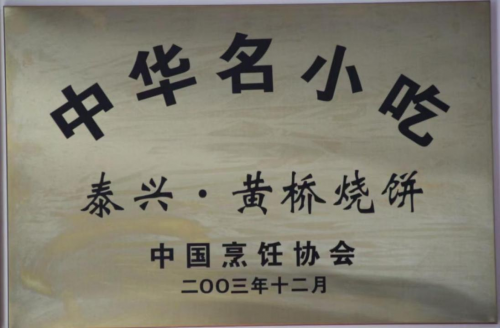 中华名小吃
泰兴·黄桥烧饼
中国烹饪协会
二OO三年十二月